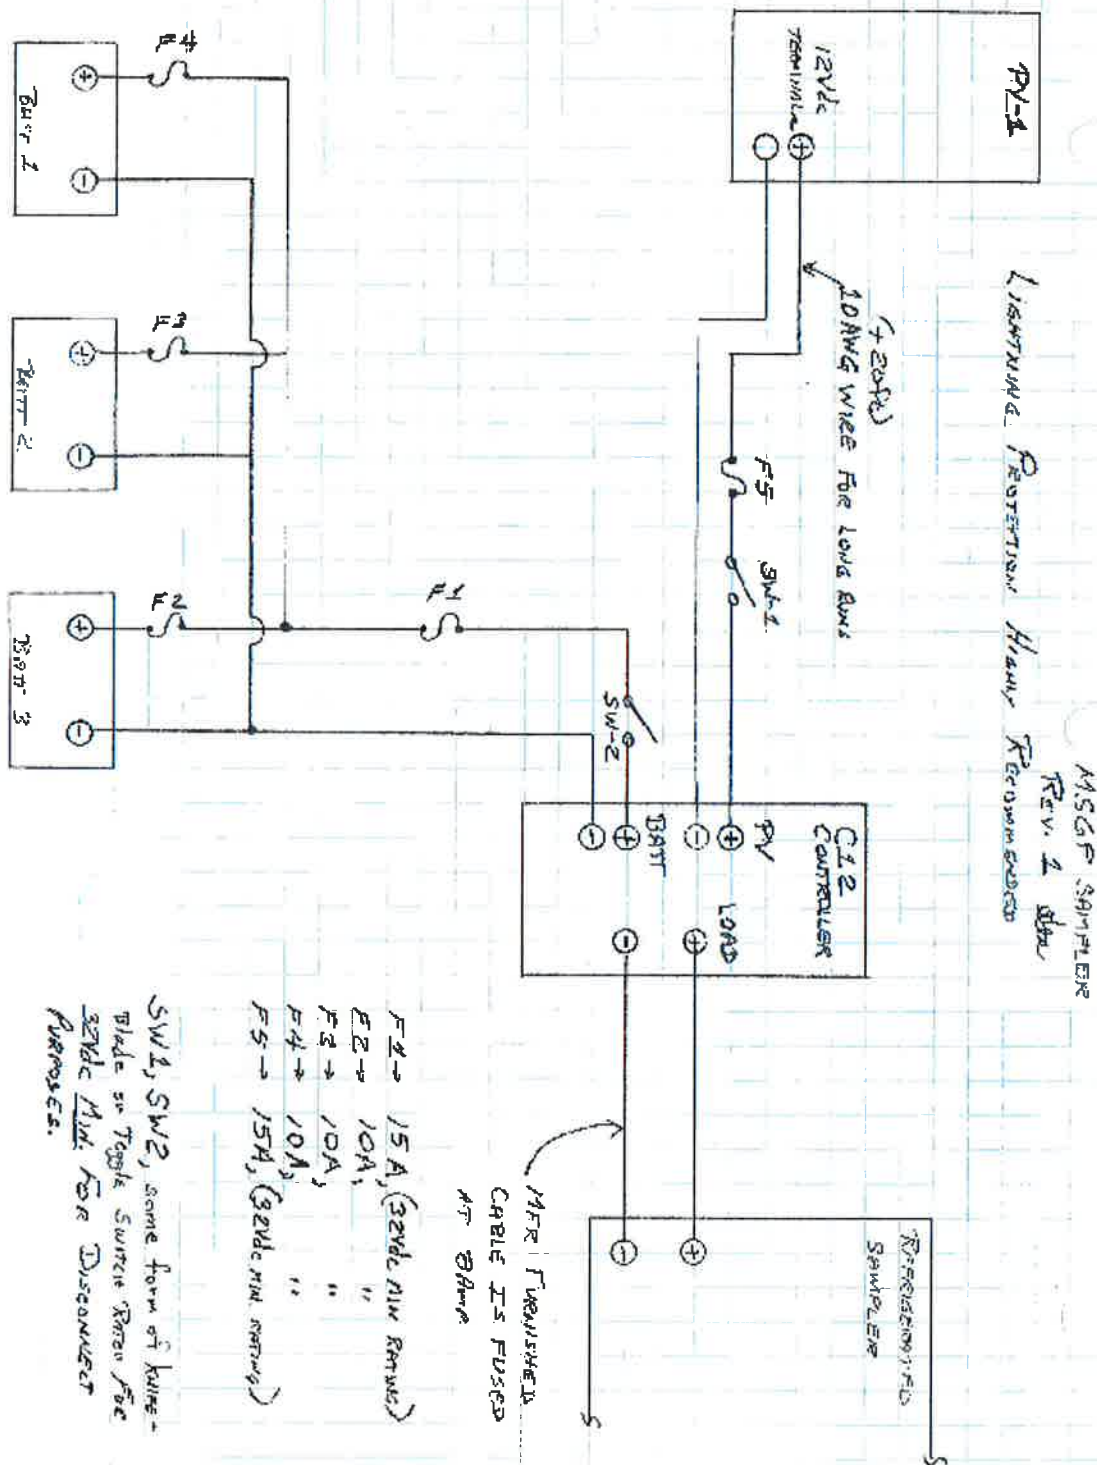 MSGP SAMPLER
REV. 1
LIGHTNING PROTECTION HIGHLY RECOMMENDED
PV-1
12Vdc
TERMINALS
+
(+20ft)
10AWG WIRE FOR LONG RUNS
F5
SW-1
C12
CONTROLLER
PV
LOAD
+
-
BATT
+
-
+
-
REFRIGERATED
SAMPLER
+
-
MFR FURNISHED
CABLE IS FUSED
AT 8Amp
F4
F3
F2
F1
SW-2
+
-
BATT 1
+
-
BATT-2
+
-
BATT 3
F1→ 15A, (32Vdc MIN RATING)
F2→ 10A, "
F3→ 10A, "
F4→ 10A, "
F5→ 15A, (32Vdc MIN. RATING)
SW1, SW2, some form of KNIFE-
Blade or Toggle SWITCH RATED FOR
32Vdc MIN. FOR DISCONNECT
PURPOSES.